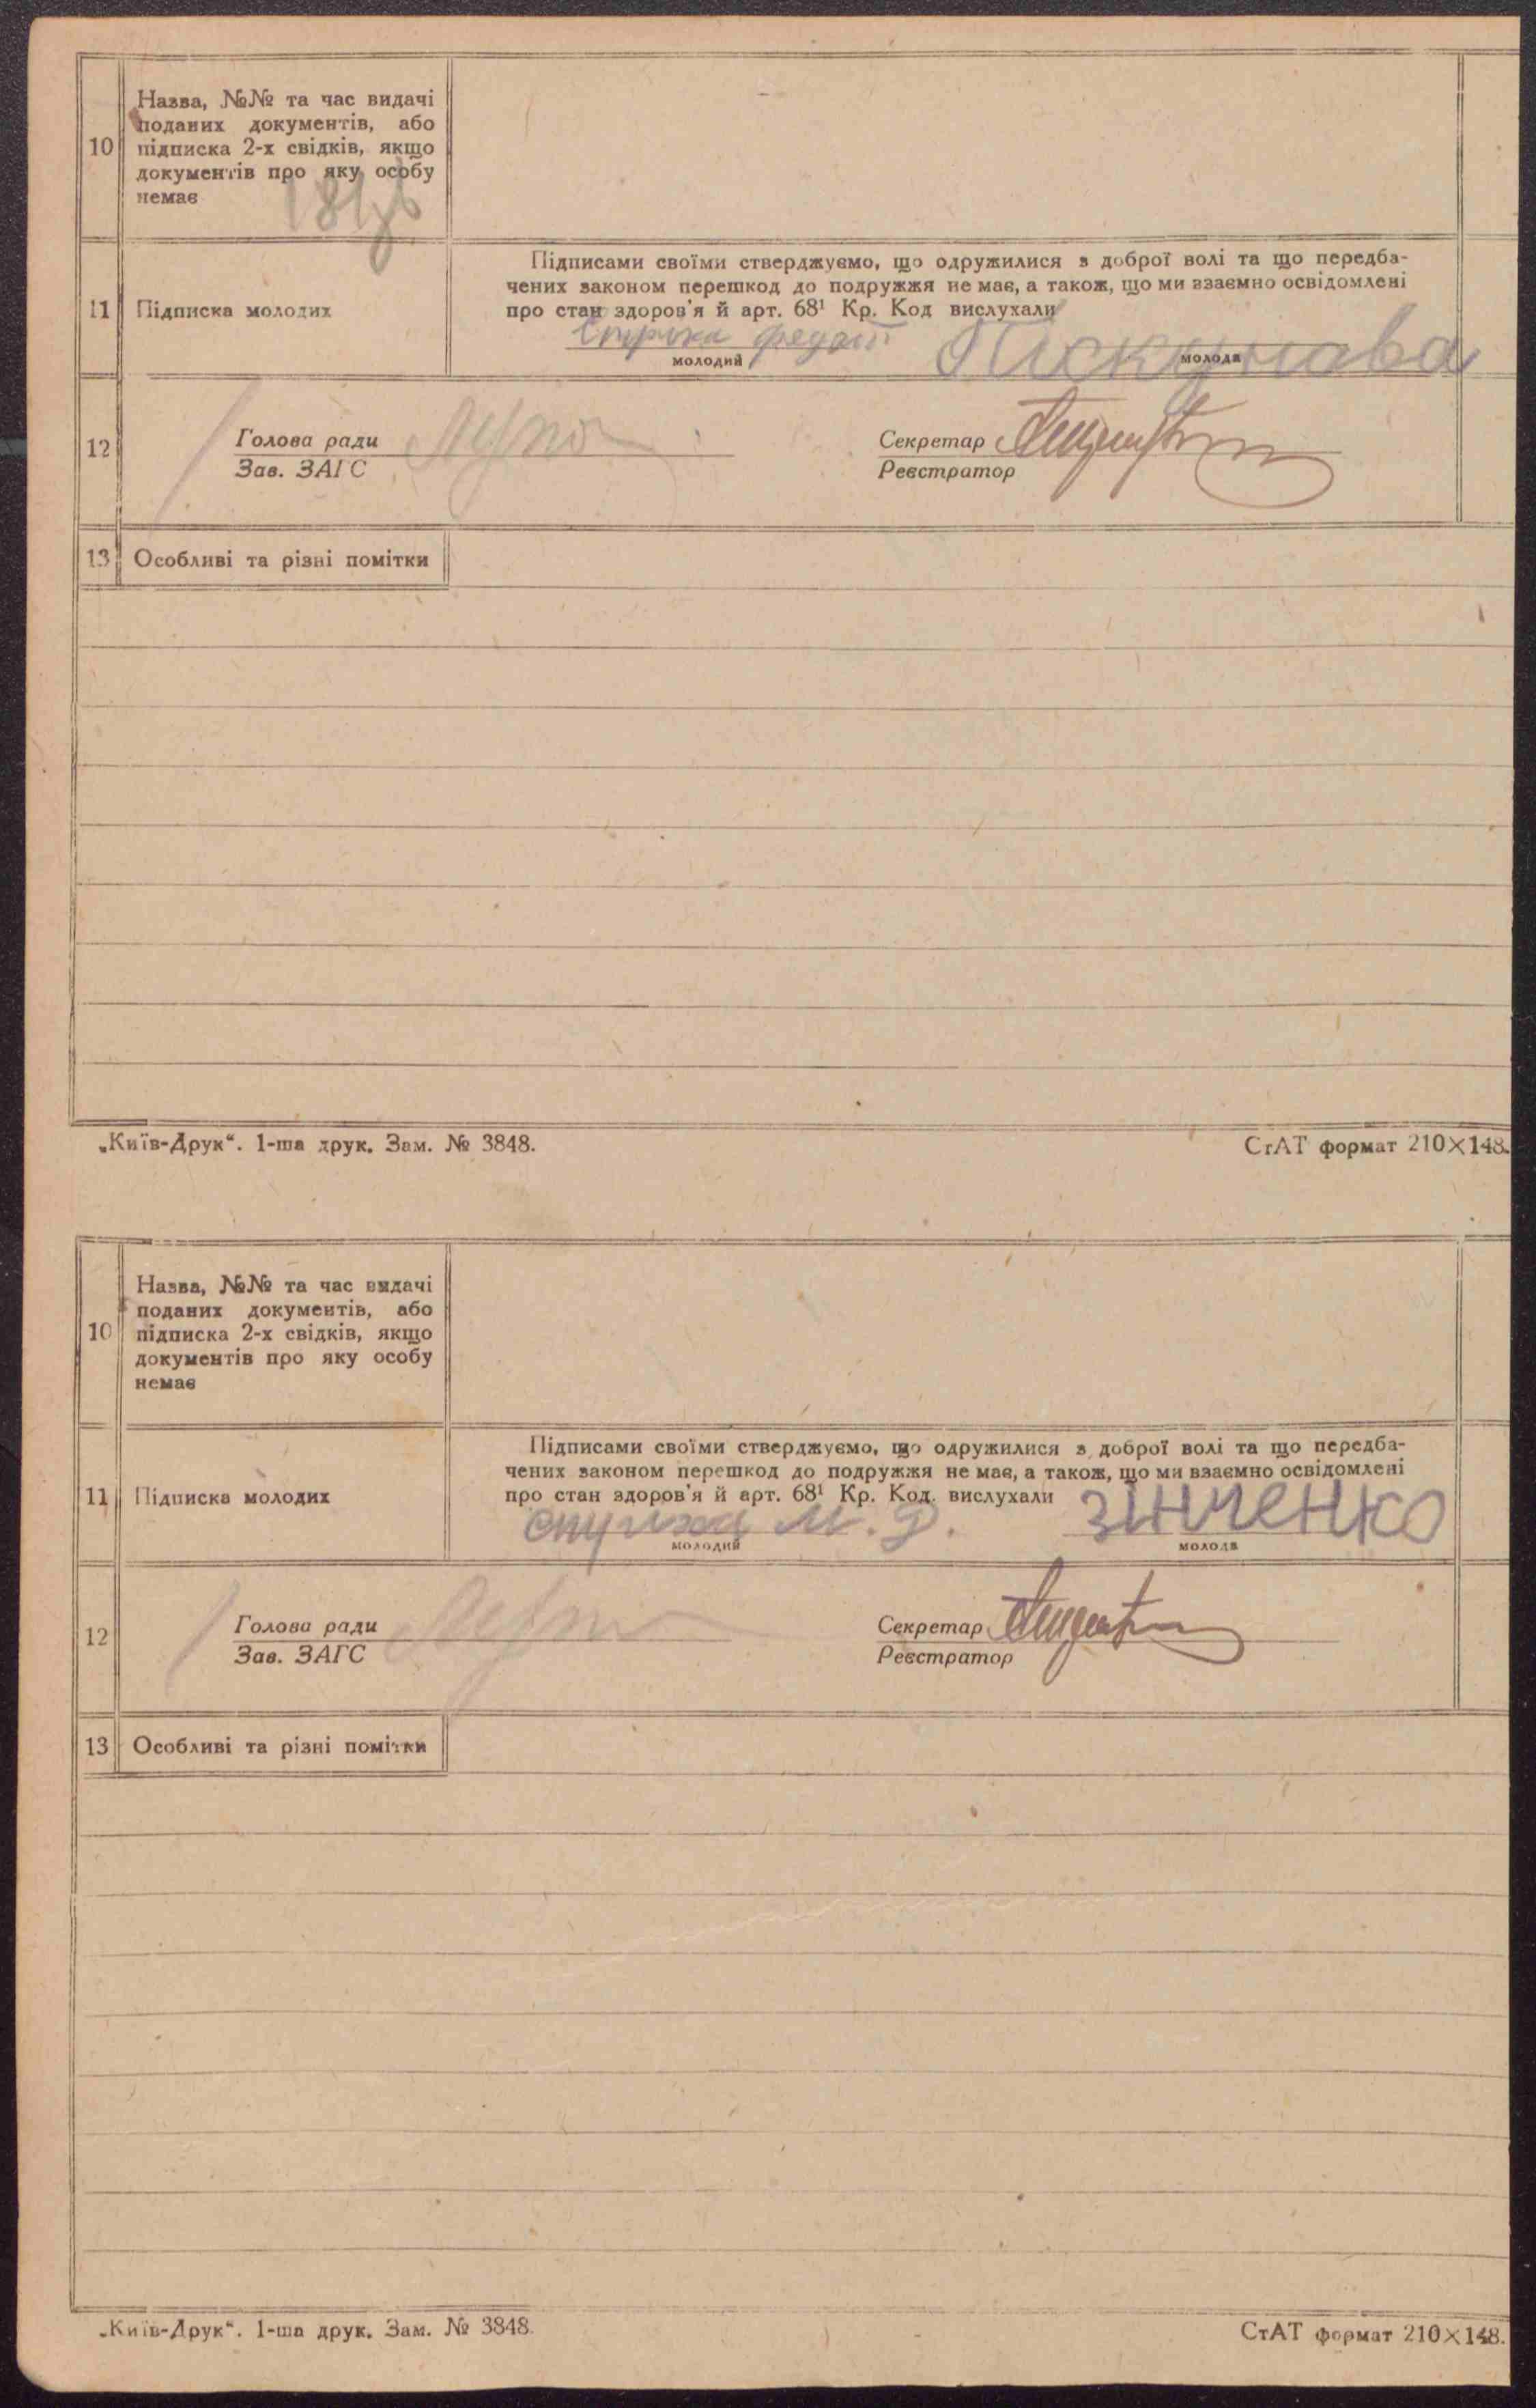 10
Назва, №№ та час видачі
поданих документів, або
підписка 2-х свідків, якщо
документів про яку особу
немає
11
Підписка молодих
Підписами своїми стверджуємо, що одружилися з доброї волі та що передба-
чених законом перешкод до подружжя не має, а також, що ми взаємно освідомлені
про стан здоров'я й арт. 68¹ Кр. Код вислухали
молодий
молода
12
Голова ради
Зав. ЗАГС
Секретар
Реєстратор
13
Особливі та різні помітки
„Київ-Друк“. 1-ша друк. Зам. № 3848.
СтАТ формат 210×148.
10
Назва, №№ та час видачі
поданих документів, або
підписка 2-х свідків, якщо
документів про яку особу
немає
11
Підписка молодих
Підписами своїми стверджуємо, що одружилися з доброї волі та що передба-
чених законом перешкод до подружжя не має, а також, що ми взаємно освідомлені
про стан здоров'я й арт. 68¹ Кр. Код. вислухали
М. Д. Зінченко
молодий
молода
12
Голова ради
Зав. ЗАГС
Секретар
Реєстратор
13
Особливі та різні помітки
„Київ-Друк“. 1-ша друк. Зам. № 3848.
СтАТ формат 210×148.